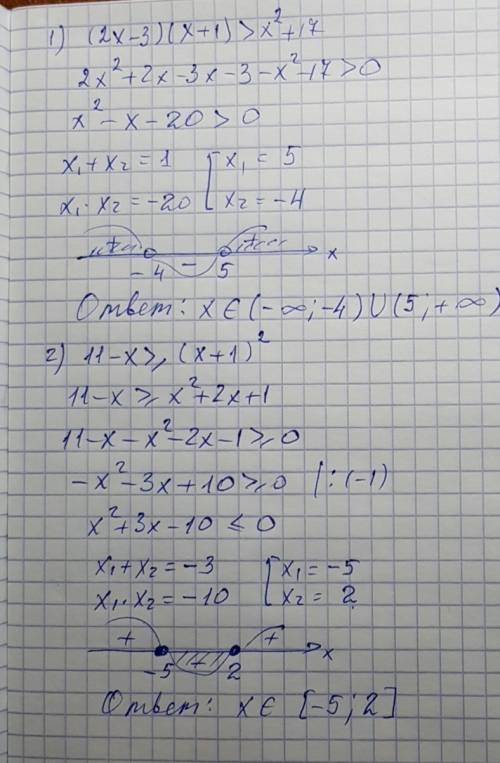 1) (2x-3)(x+1)>x²+17
2x²+2x-3x-3-x²-17>0
x²-x-20>0
x₁+x₂=1 [x₁=5
x₁·x₂=-20 [x₂=-4
+ - + x
-4 5
Ответ: x∈(-∞;-4)∪(5;+∞)
2) 11-x⩾(x+1)²
11-x⩾x²+2x+1
11-x-x²-2x-1⩾0
-x²-3x+10⩾0 |:(-1)
x²+3x-10≤0
x₁+x₂=-3 [x₁=-5
x₁·x₂=-10 [x₂=2
+ + + x
-5 2
Ответ: x∈[-5;2]